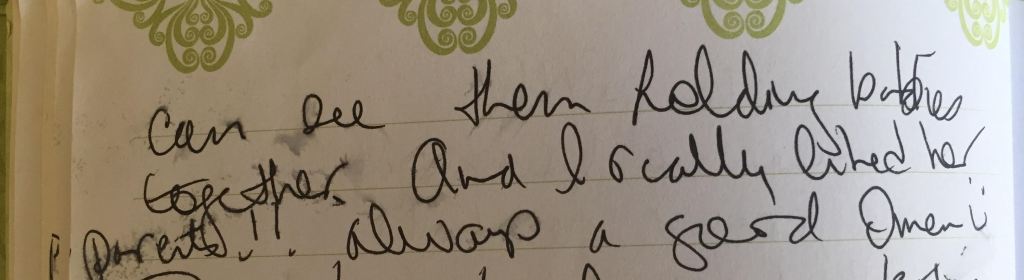 can see them holding babies
together. And I really liked her
parents!! always a good Omen!